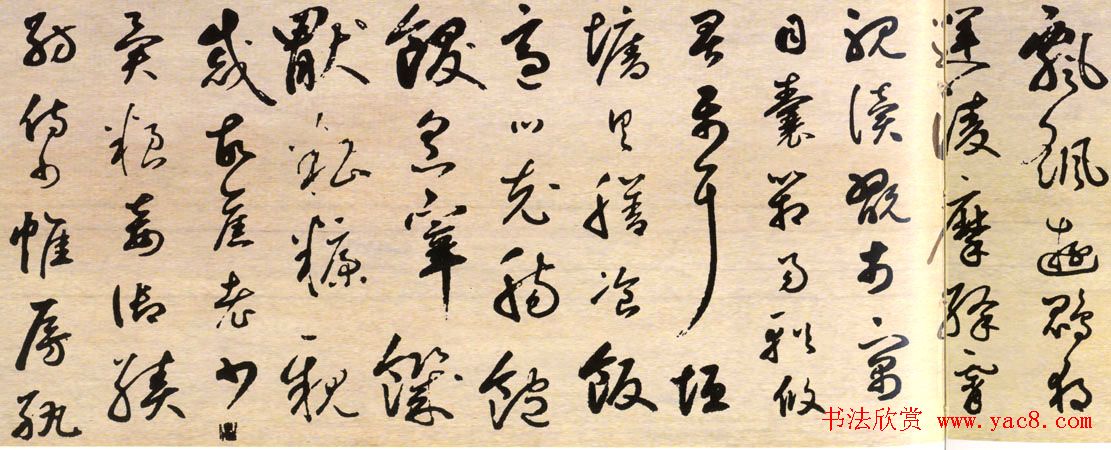 飄颻遊鵾獨
運凌摩絳霄
耽讀翫市寓
目囊箱易輶攸
畏属耳垣
墻具膳飡飯
適口充腸飽
飫烹宰饑
厭糟糠親
戚故舊老少
異粮妾御績
紡侍巾帷房紈
书法欣赏 www.yac8.com